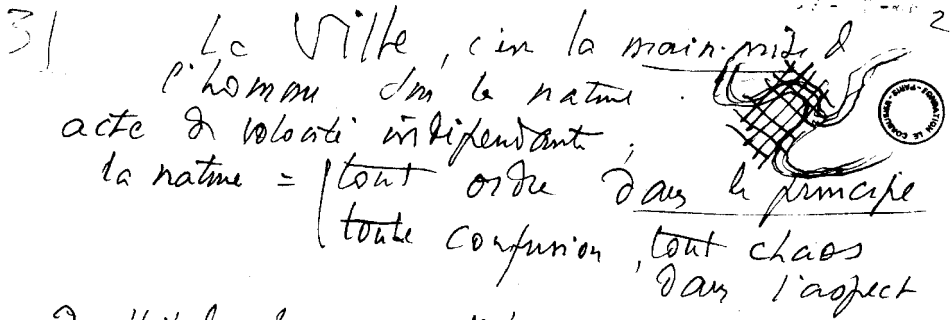 3/ 2
La Ville, c'est la main-mise d
l'homme sur la nature.
acte de volonté indépendante,
la nature = tout ordre dans le principe
toute confusion, tout chaos
dans l'aspect
FONDATION LE CORBUSIER - PARIS